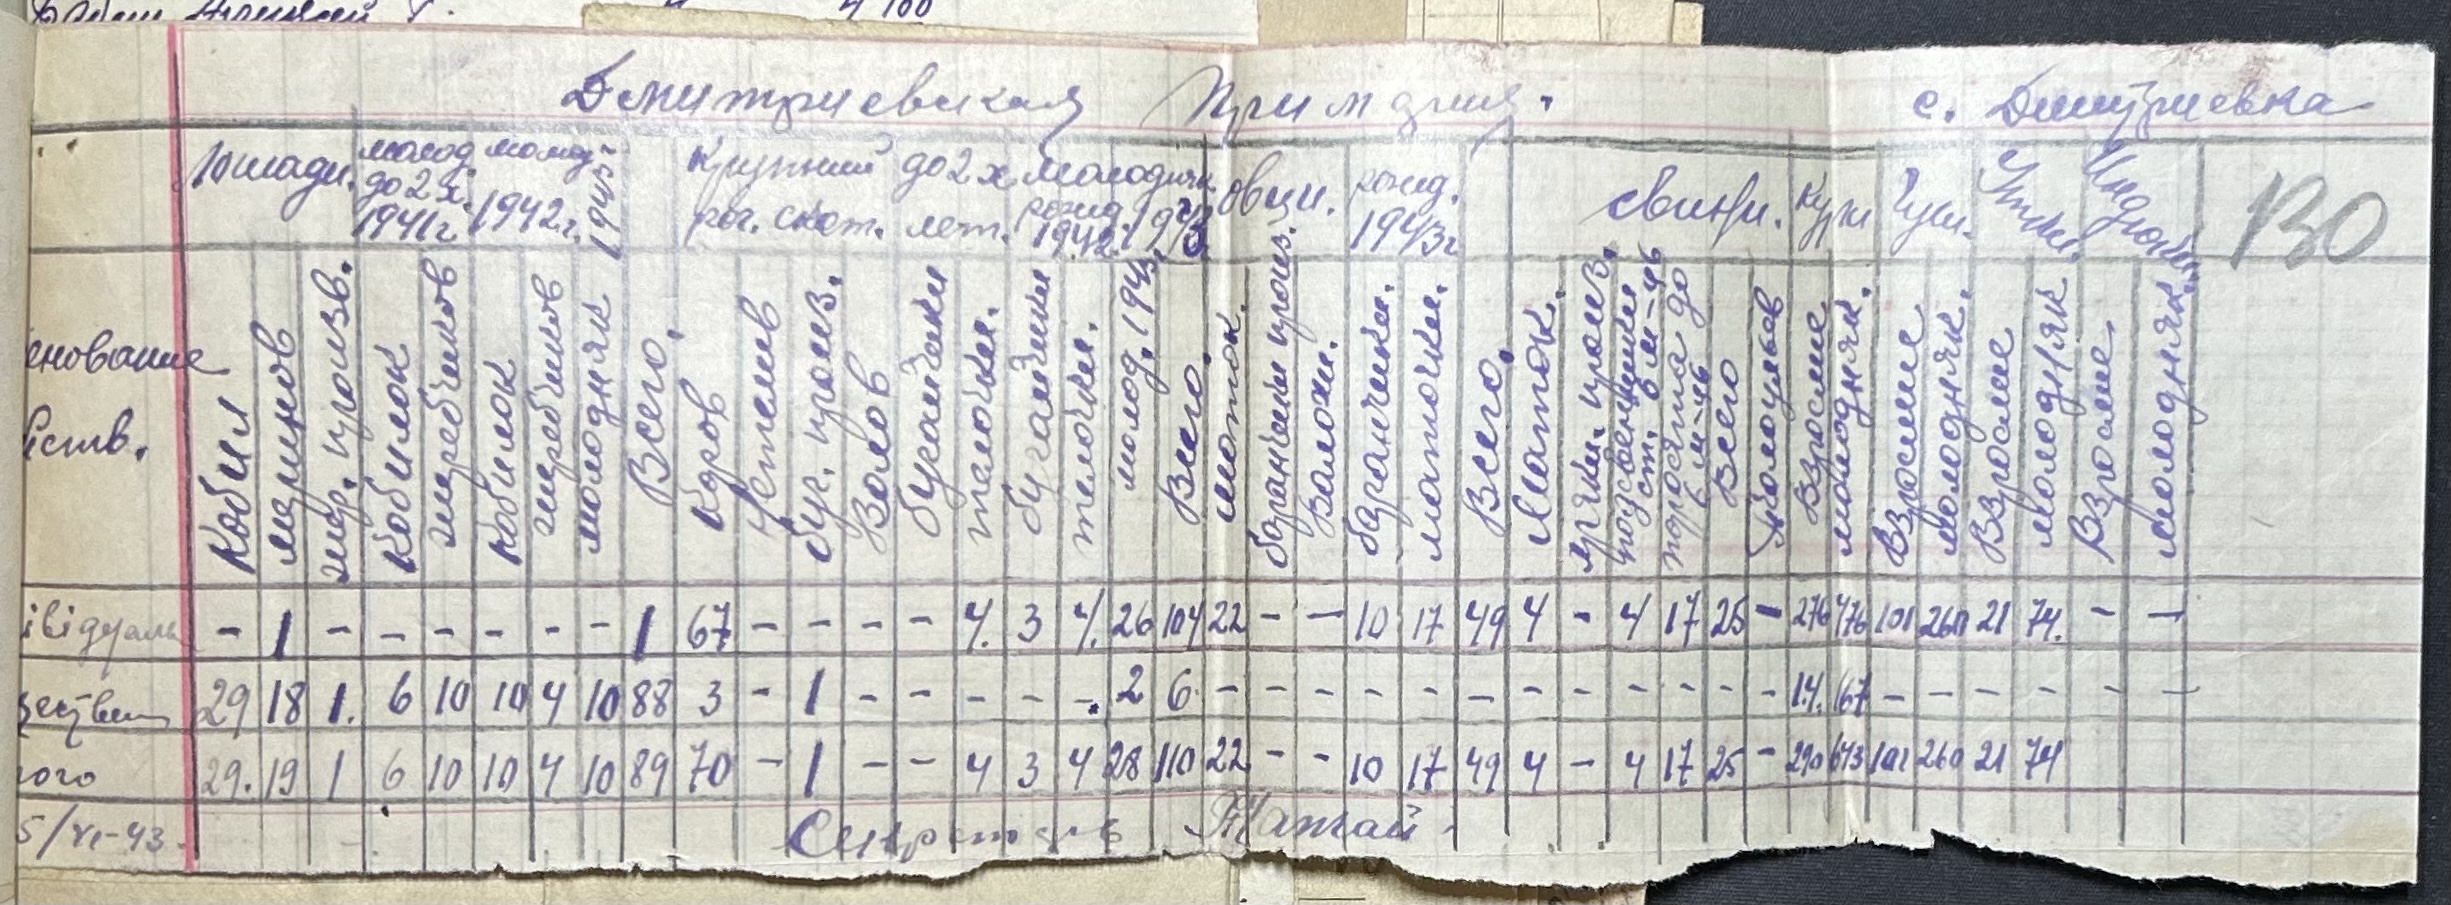 4 100
Дмитриевская Примария. с. Дмитриевка
130
Лошади. молод до 2 х. 1941г молод 1942г. 1943г Крупний рог. скот. до 2 х лет. молодняк рожд. 1942г. 1943 овци. рожд. 1943г свини. Кури Гуси. Утки.
енование
йств.
Кобил меринов жер. произв. Кобилок жеребчиков кобилок жеребчиков молодняк Всего. Коров Нетелев буг. произв. Волов бугайчики телочки. бугайчики телочки. молод. 1943г Всего. маток. баранчики произ. Валохи. баранчики. маточки. Всего. Маток. произв. подсвеники ст. 6 м-цев поросята до 6 м-цев Всего Взрослые молодняк. Взрослие молодняк. Взрослие молодняк Взрослие молодняк.
івідуальн - 1 - - - - - - 1 67 - - - - 4. 3 4. 26 104 22 - - 10 17 49 4 - 4 17 25 - 276 476 101 260 21 74. - -
ществен 29 18 1. 6 10 10 4 10 88 3 - 1 - - - - - 2 6 - - - - - - - - - - - - 14. 167 - - - - - -
ого 29. 19 1 6 10 10 4 10 89 70 - 1 - - 4 3 4 28 110 22 - - 10 17 49 4 - 4 17 25 - 290 643 101 260 21 74
5/VI-43. Секретарь